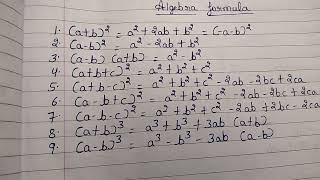 Algebra formula
1. (a+b)² = a² + 2ab + b² = (-a-b)²
2. (a-b)² = a² - 2ab + b²
3. (a-b) (a+b) = a² - b²
4. (a+b+c)² = a² + b² + c²
5. (a+b-c)² = a² + b² + c² - 2ab - 2bc + 2ca
6. (a-b+c)² = a² + b² + c² - 2ab - 2bc + 2ca
7. (a-b-c)² = a² + b² + c² - 2ab + 2bc - 2ca
8. (a+b)³ = a³ + b³ + 3ab (a+b)
9. (a-b)³ = a³ - b³ - 3ab (a-b)